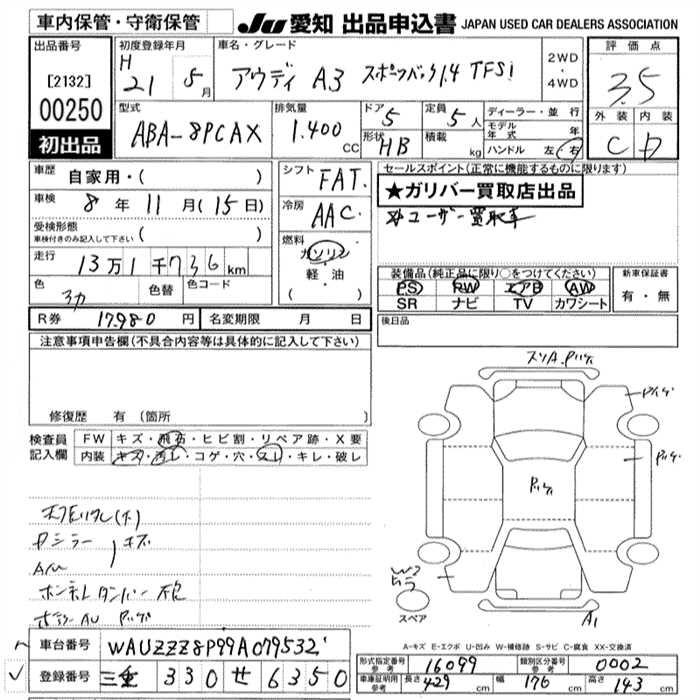 車内保管・守衛保管
JU 愛知 出品申込書 JAPAN USED CAR DEALERS ASSOCIATION
出品番号
[2132]
00250
初出品
初度登録年月
H 21 5月
車名・グレード
アウディ A3 スポーツバック1.4 TFSi
2WD
・
4WD
評価点
3.5
外装 内装
C D
型式
ABA-8PCAX
排気量
1.400 CC
ドア 5
定員 5人
形状 HB
積載 kg
ディーラー・並行
モデル年式 年
ハンドル 左・右
車歴 自家用・( )
車検 8年 11月(15日)
受検形態
車検付きのみ記入して下さい ( )
走行 13万1千736km
色
色替
色コード
シフト FAT.
冷房 AAC
燃料
ガソリン
・
軽・油
( )
セールスポイント(正常に機能するものに限ります)
★ガリバー買取店出品
※ユーザー買取車
装備品(純正品に限り○をつけてください)
PS PW エアB AW
SR ナビ TV カワシート
新車保証書
有・無
R券 17980円
名変期限 月 日
後日品
注意事項申告欄(不具合内容等は具体的に記入して下さい)
修復歴 有(箇所
検査員記入欄
FW キズ・飛石・ヒビ割・リペア跡・X要
内装 キズ・汚レ・コゲ・穴・スレ・キレ・破レ
スリA.Pハゲ
Pハゲ
Pハゲ
Pハゲ
W2
A1
スペア
Dシラー キズ
AM
A-キズ E-エクボ U-凹み W-補修跡 S-サビ C-腐食 XX-交換済
車台番号 WAUZZZ8P99A079532
登録番号 三重 330 せ 6350
形式指定番号 参考 16099
類別区分番号 参考 0002
車庫証明用 参考 長さ 429cm 幅 176cm 高さ 143cm